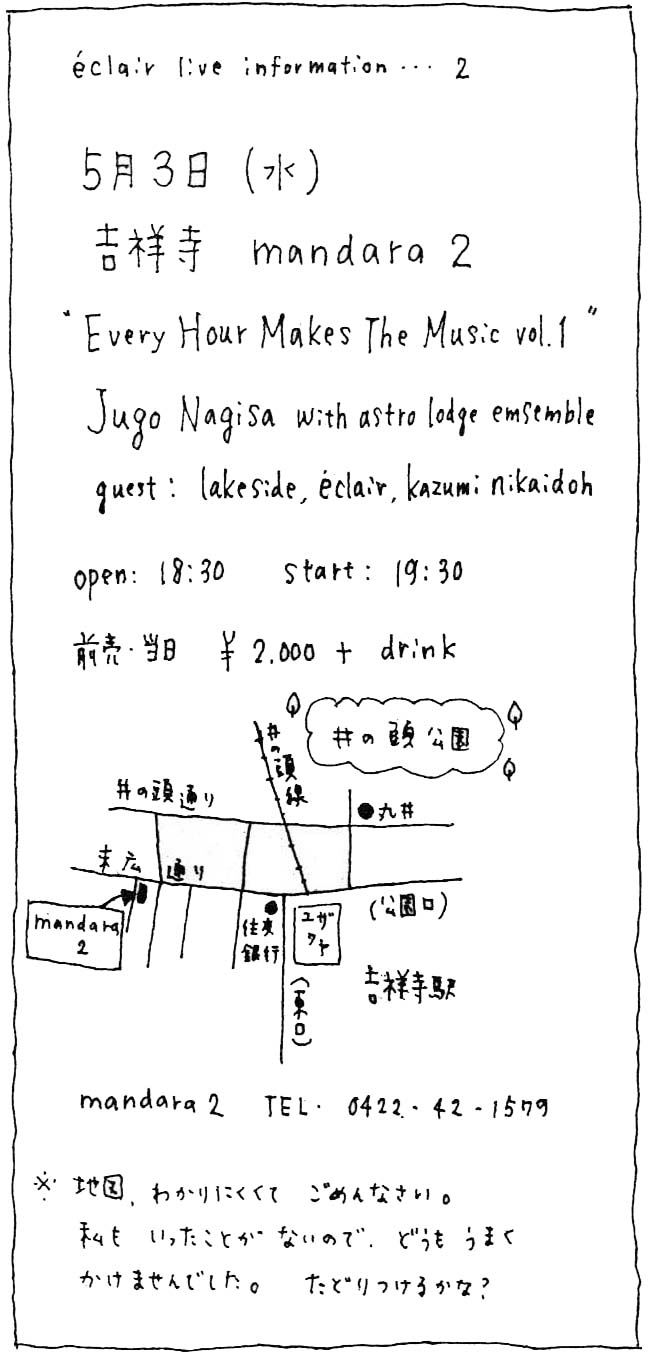 éclair live information ... 2
5月3日 (水)
吉祥寺 mandara 2
"Every Hour Makes The Music vol.1"
Jugo Nagisa with astro lodge emsemble
guest: lakeside, éclair, kazumi nikaidoh
open: 18:30 start: 19:30
前売・当日 ¥2.000 + drink
井の頭公園
井の頭線
井の頭通り
丸井
末広通り
mandara
2
住友
銀行
ユザ
ワヤ
(公園口)
(東口)
吉祥寺駅
mandara 2 TEL. 0422-42-1579
※ 地図、わかりにくくて ごめんなさい。
私も いったことが ないので、どうも うまく
かけませんでした。 たどりつけるかな?